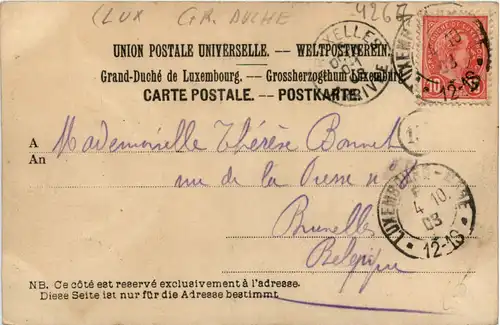 (LUX GR. DUCHE 4267
UNION POSTALE UNIVERSELLE. — WELTPOSTVEREIN.
Grand-Duché de Luxembourg. — Grossherzogthum Luxemburg.
CARTE POSTALE. — POSTKARTE.
BRUXELLES
ARRIVÉE
10
12-1S
A Mademoiselle Thérèse Bonnet
An
rue de la Presse n 8
Bruxelles
Belgique
LUXEMBOURG-GARE
4.10.
03
12-1S
NB. Ce côté est reservé exclusivement à l'adresse.
Diese Seite ist nur für die Adresse bestimmt.